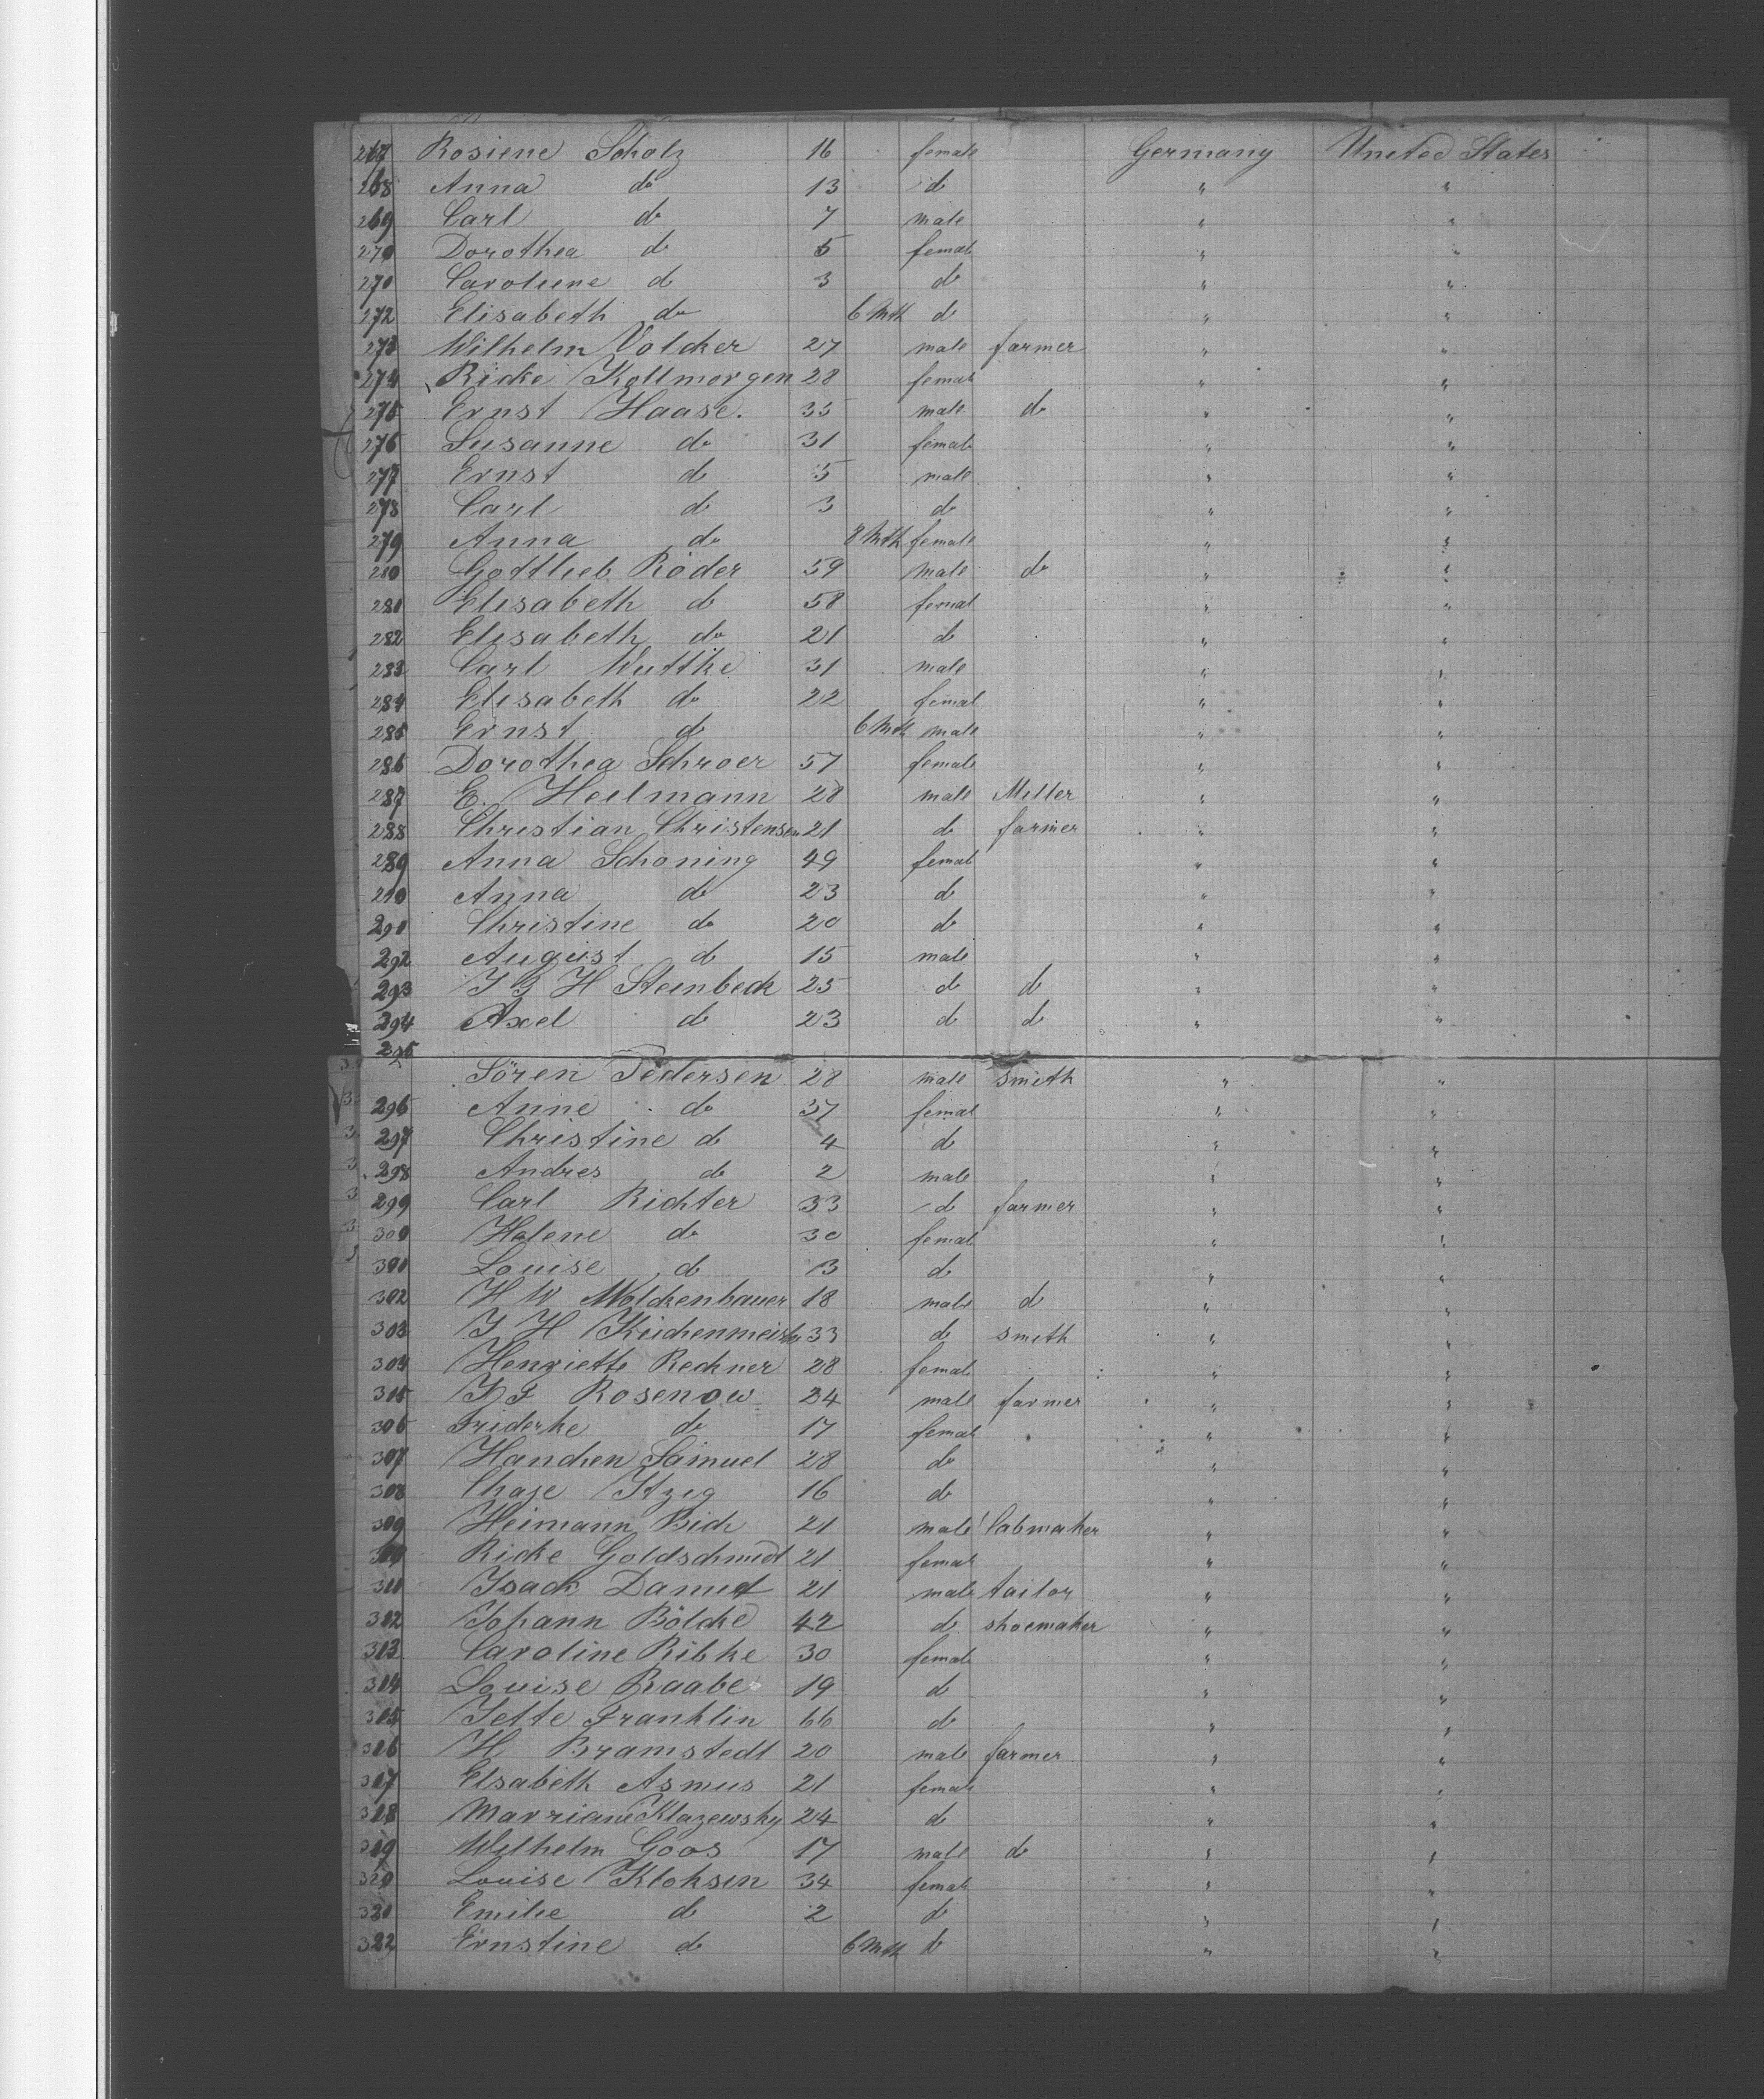 267 Rosiene Scholz 16 female Germany United States
268 Anna do 13 do " "
269 Carl do 7 male " "
270 Dorothea do 5 female " "
270 Caroliene do 3 do " "
272 Elisabeth do 6 Mth do " "
273 Wilhelm Volcker 27 male farmer " "
274 Ricke Kollmorgen 28 female " "
275 Ernst Haase. 35 male do " "
276 Susanne do 31 female " "
277 Ernst do 5 male " "
278 Carl do 3 do " "
279 Anna do 8 Mth female " "
280 Gottlieb Röder 59 male do " "
281 Elisabeth do 58 female " "
282 Elisabeth do 21 do " "
283 Carl Wuttke 31 male " "
284 Elisabeth do 22 female " "
285 Ernst do 6 Mth male " "
286 Dorothea Schroer 57 female " "
287 E. Heilmann 28 male Miller " "
288 Christian Christensen 21 do farmer " "
289 Anna Schoning 49 female " "
290 Anna do 23 do " "
291 Christine do 20 do " "
292 August do 15 male " "
293 J G H Steinbeck 25 do do " "
294 Axel do 23 do do " "
295
Sören Pedersen 28 male smith " "
296 Anne do 37 female " "
297 Christine do 4 do " "
298 Andres do 2 male " "
299 Carl Richter 33 do farmer " "
300 Helene do 30 female " "
301 Louise do 3 do " "
302 H W Molckenhauer 18 male do " "
303 J H Küchenmeister 33 do smith " "
304 Henriette Rechner 28 female " "
305 J F Rosenow 24 male farmer " "
306 Friderke do 17 female " "
307 Hanchen Samuel 28 do " "
308 Chaje Itzig 16 do " "
309 Heimann Bich 21 male Cabmaker " "
310 Ricke Goldschmidt 21 female " "
311 Isack Daniel 21 male tailor " "
312 Johann Bölcke 42 do shoemaker " "
313 Caroline Ribke 30 female " "
314 Louise Raabe 19 do " "
315 Jette Franklin 66 do " "
316 H Bramstedt 20 male farmer " "
317 Elsabeth Asmus 21 female " "
318 Marriane Klazewsky 24 do " "
319 Wilhelm Goos 17 male do " "
320 Louise Kloksin 34 female " "
321 Emilie do 2 do " "
322 Ernstine do 6 Mth do " "